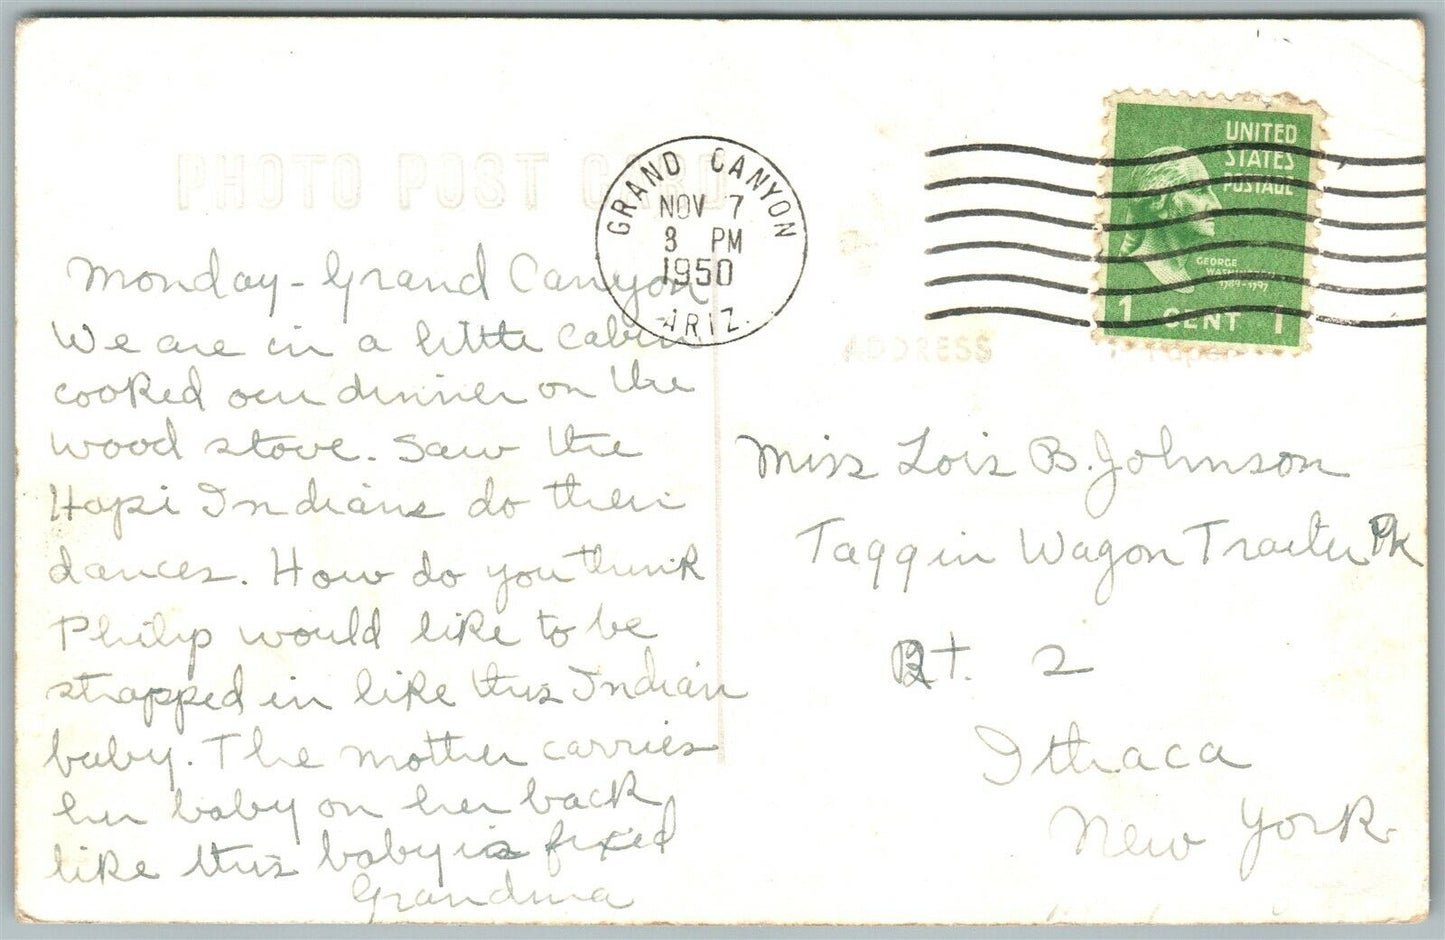 PHOTO POST CARD
GRAND CANYON
NOV 7
8 PM
1950
ARIZ.
UNITED
STATES
POSTAGE
GEORGE
WASHINGTON
1789-1797
1 CENT 1
ADDRESS
Monday - Grand Canyon
We are in a little Cabin
cooked our dinner on the
wood stove. Saw the
Hopi Indians do their
dances. How do you think
Philip would like to be
strapped in like this Indian
baby. The mother carries
her baby on her back
like this baby is fixed
Grandma
Miss Lois B. Johnson
Taggin Wagon Trailer Pk
Rt. 2
Ithaca
New York